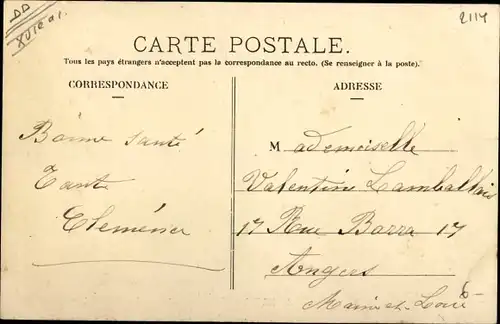 DD
2114
CARTE POSTALE.
Tous les pays étrangers n'acceptent pas la correspondance au recto. (Se renseigner à la poste).
CORRESPONDANCE
ADRESSE
Bonne santé
Tante
Clémence
Mademoiselle
Valentine Lamballais
17 Rue Barra 17
Angers
Maine et Loire